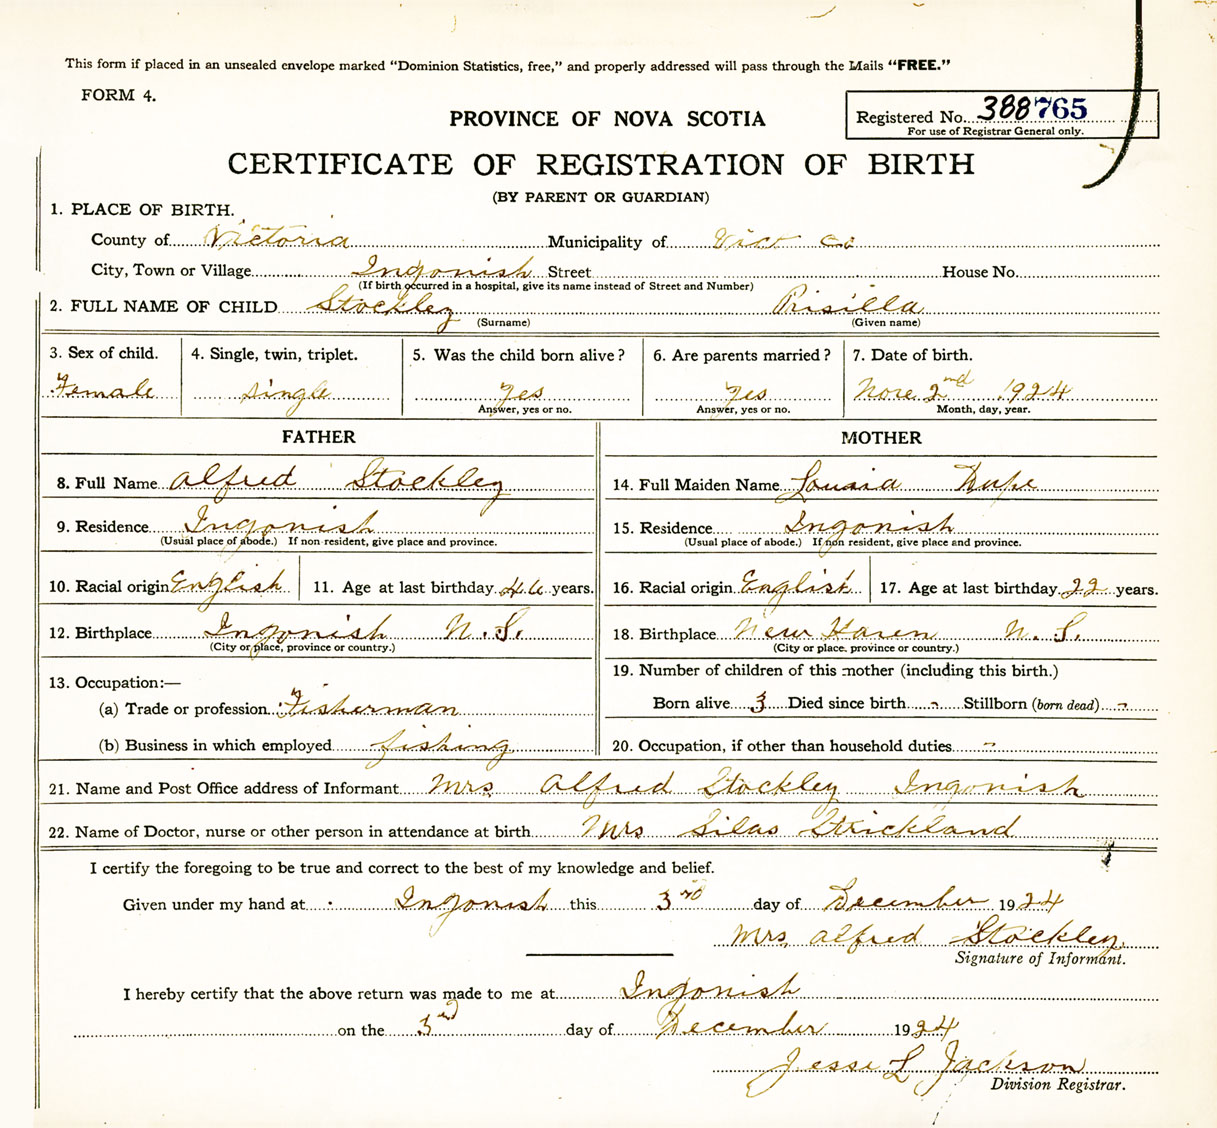 This form if placed in an unsealed envelope marked "Dominion Statistics, free," and properly addressed will pass through the Mails "FREE."
FORM 4.
PROVINCE OF NOVA SCOTIA
Registered No. 388765
For use of Registrar General only.
CERTIFICATE OF REGISTRATION OF BIRTH
(BY PARENT OR GUARDIAN)
1. PLACE OF BIRTH.
County of Victoria Municipality of Vict Co
City, Town or Village Ingonish Street House No.
(If birth occurred in a hospital, give its name instead of Street and Number)
2. FULL NAME OF CHILD Stockley Prisilla
(Surname) (Given name)
3. Sex of child. 4. Single, twin, triplet. 5. Was the child born alive? 6. Are parents married? 7. Date of birth.
Female single Yes Yes Nove 2nd 1924
Answer, yes or no. Answer, yes or no. Month, day, year.
FATHER MOTHER
8. Full Name Alfred Stockley 14. Full Maiden Name Lousia
9. Residence Ingonish 15. Residence Ingonish
(Usual place of abode.) If non resident, give place and province. (Usual place of abode.) If non resident, give place and province.
10. Racial origin English 11. Age at last birthday years. 16. Racial origin English 17. Age at last birthday 22 years.
12. Birthplace Ingonish N. S. 18. Birthplace New Haven N. S.
(City or place, province or country.) (City or place, province or country.)
13. Occupation:— 19. Number of children of this mother (including this birth.)
(a) Trade or profession Fisherman Born alive 3 Died since birth - Stillborn (born dead) -
(b) Business in which employed fishing 20. Occupation, if other than household duties -
21. Name and Post Office address of Informant Mrs. Alfred Stockley Ingonish
22. Name of Doctor, nurse or other person in attendance at birth Mrs Silas Strickland
I certify the foregoing to be true and correct to the best of my knowledge and belief.
Given under my hand at Ingonish this 3rd day of December 1924
Mrs. Alfred Stockley.
Signature of Informant.
I hereby certify that the above return was made to me at Ingonish
on the 3rd day of December 1924
Jesse L Jackson
Division Registrar.